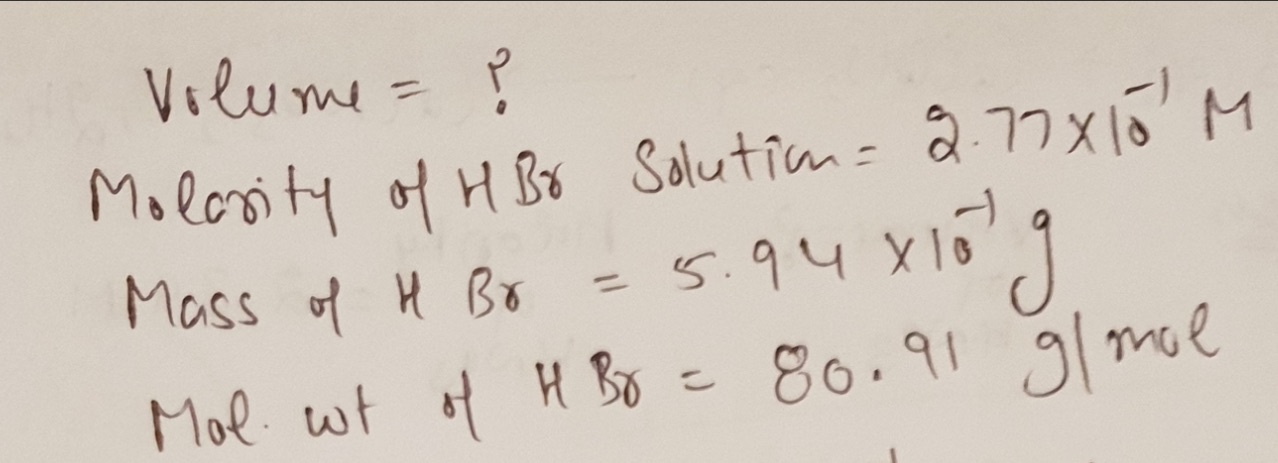 Volume = ?
Molarity of HBr Solution = 2.77×10⁻¹ M
Mass of HBr = 5.94 ×10⁻¹ g
Mol. wt of HBr = 80.91 g/mol